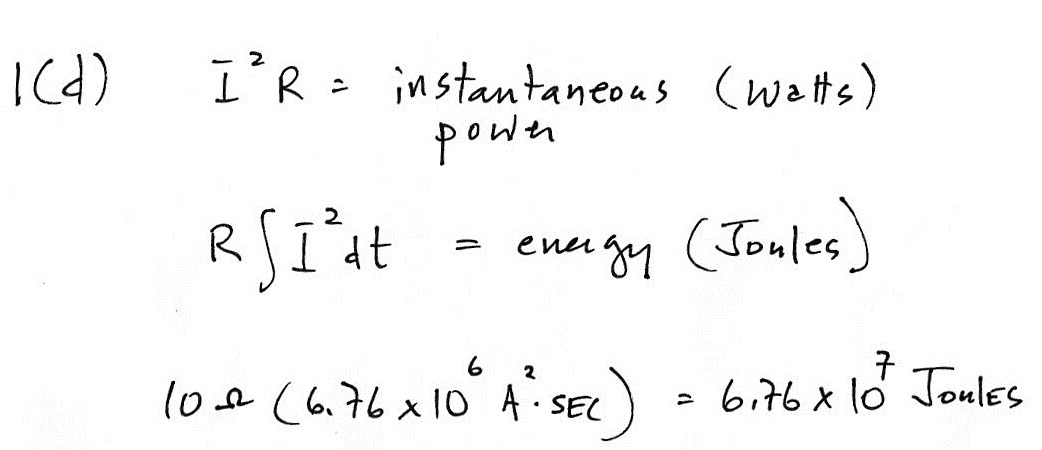 1(d) I²R = instantaneous (Watts)
power
R∫I²dt = energy (Joules)
10 Ω (6.76 x 10⁶ A²·SEC) = 6.76 x 10⁷ JoulES